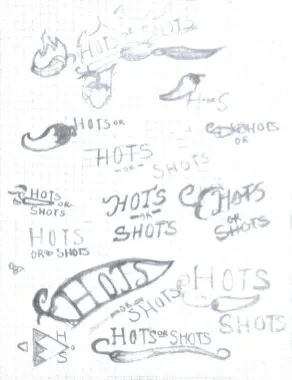 HOTS OR SHOTS
H-OR-S
HOTS OR
SHOTS
OR
HOTS
-OR-
SHOTS
HOTS
OR
SHOTS
HOTS
-OR-
SHOTS
HOTS
OR
SHOTS
HOTS
OR SHOTS
HOTS
-OR-
SHOTS
HOTS
SHOTS
H
O
S
HOTS OR SHOTS